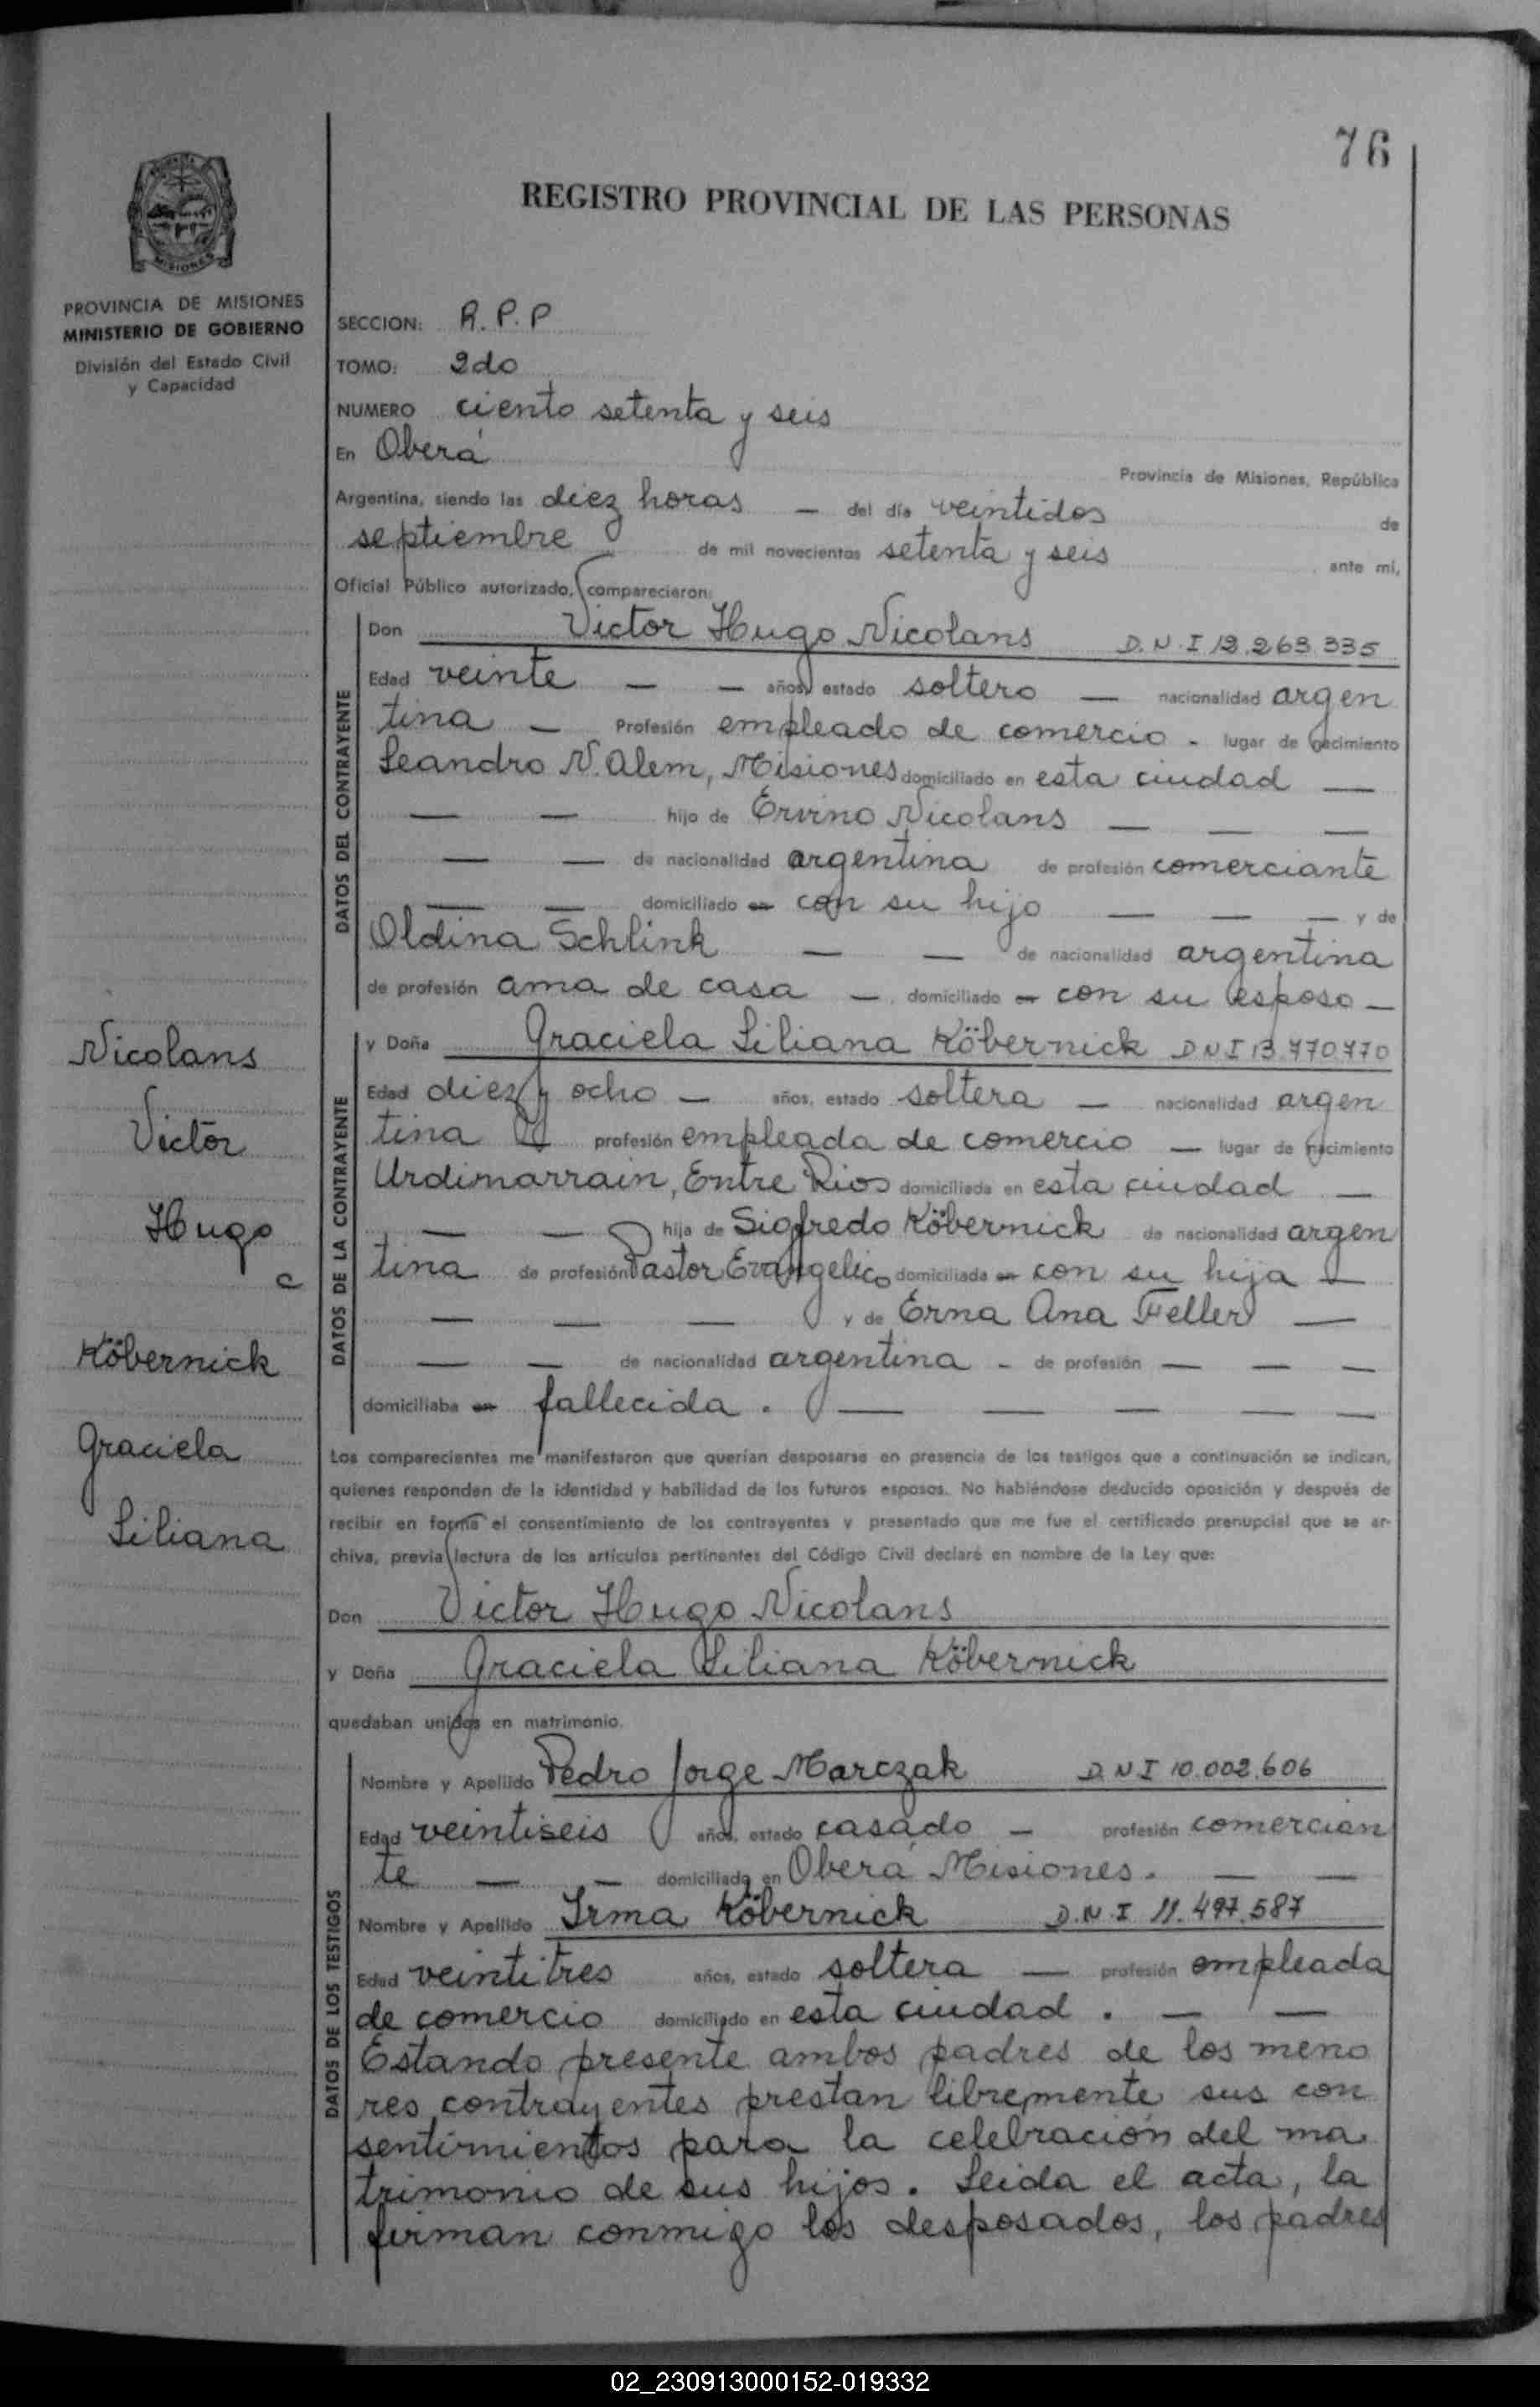 76
REGISTRO PROVINCIAL DE LAS PERSONAS
MISIONES
PROVINCIA DE MISIONES
MINISTERIO DE GOBIERNO
División del Estado Civil
y Capacidad
SECCION: R.P.P
TOMO: 2do
NUMERO ciento setenta y seis
En Oberá
Provincia de Misiones, República
Argentina, siendo las diez horas — del día veintidos de
septiembre de mil novecientos setenta y seis ante mí,
Oficial Público autorizado, comparecieron:
DATOS DEL CONTRAYENTE
Don Victor Hugo Nicolans D.N.I 12.263.335
Edad veinte — — años, estado soltero — nacionalidad argen
tina — Profesión empleado de comercio - lugar de nacimiento
Leandro N. Alem, Misiones domiciliado en esta ciudad —
— — hijo de Ervino Nicolans — — —
— — de nacionalidad argentina de profesión comerciante
— — domiciliado en con su hijo — — — y de
Oldina Schlink — — de nacionalidad argentina
de profesión ama de casa — domiciliado en con su esposo —
DATOS DE LA CONTRAYENTE
y Doña Graciela Liliana Köbernick DNI 13.770.770
Edad diez y ocho — años, estado soltera — nacionalidad argen
tina profesión empleada de comercio — lugar de nacimiento
Urdinarrain, Entre Rios domiciliada en esta ciudad —
— — hija de Sigfredo Köbernick de nacionalidad argen
tina de profesión Pastor Evangelico domiciliada en con su hija —
— — — y de Erna Ana Feller —
— — de nacionalidad argentina - de profesión — — —
domiciliaba en fallecida. — — — — —
Los comparecientes me manifestaron que querían desposarse en presencia de los testigos que a continuación se indican,
quienes responden de la identidad y habilidad de los futuros esposos. No habiéndose deducido oposición y después de
recibir en forma el consentimiento de los contrayentes y presentado que me fue el certificado prenupcial que se ar-
chiva, previa lectura de los artículos pertinentes del Código Civil declaré en nombre de la Ley que:
Don Victor Hugo Nicolans
y Doña Graciela Liliana Köbernick
quedaban unidos en matrimonio.
DATOS DE LOS TESTIGOS
Nombre y Apellido Pedro Jorge Marczak D.N.I 10.002.606
Edad veintiseis años, estado casado — profesión comercian
te — — domiciliado en Oberá Misiones. — —
Nombre y Apellido Irma Köbernick D.N.I 11.497.587
Edad veintitres años, estado soltera — profesión empleada
de comercio domiciliado en esta ciudad. — —
Estando presente ambos padres de los meno
res contrayentes prestan libremente sus con
sentimientos para la celebración del ma
trimonio de sus hijos. Leida el acta, la
firman conmigo los desposados, los padres
Nicolans
Victor
Hugo
c
Köbernick
Graciela
Liliana
02_230913000152-019332